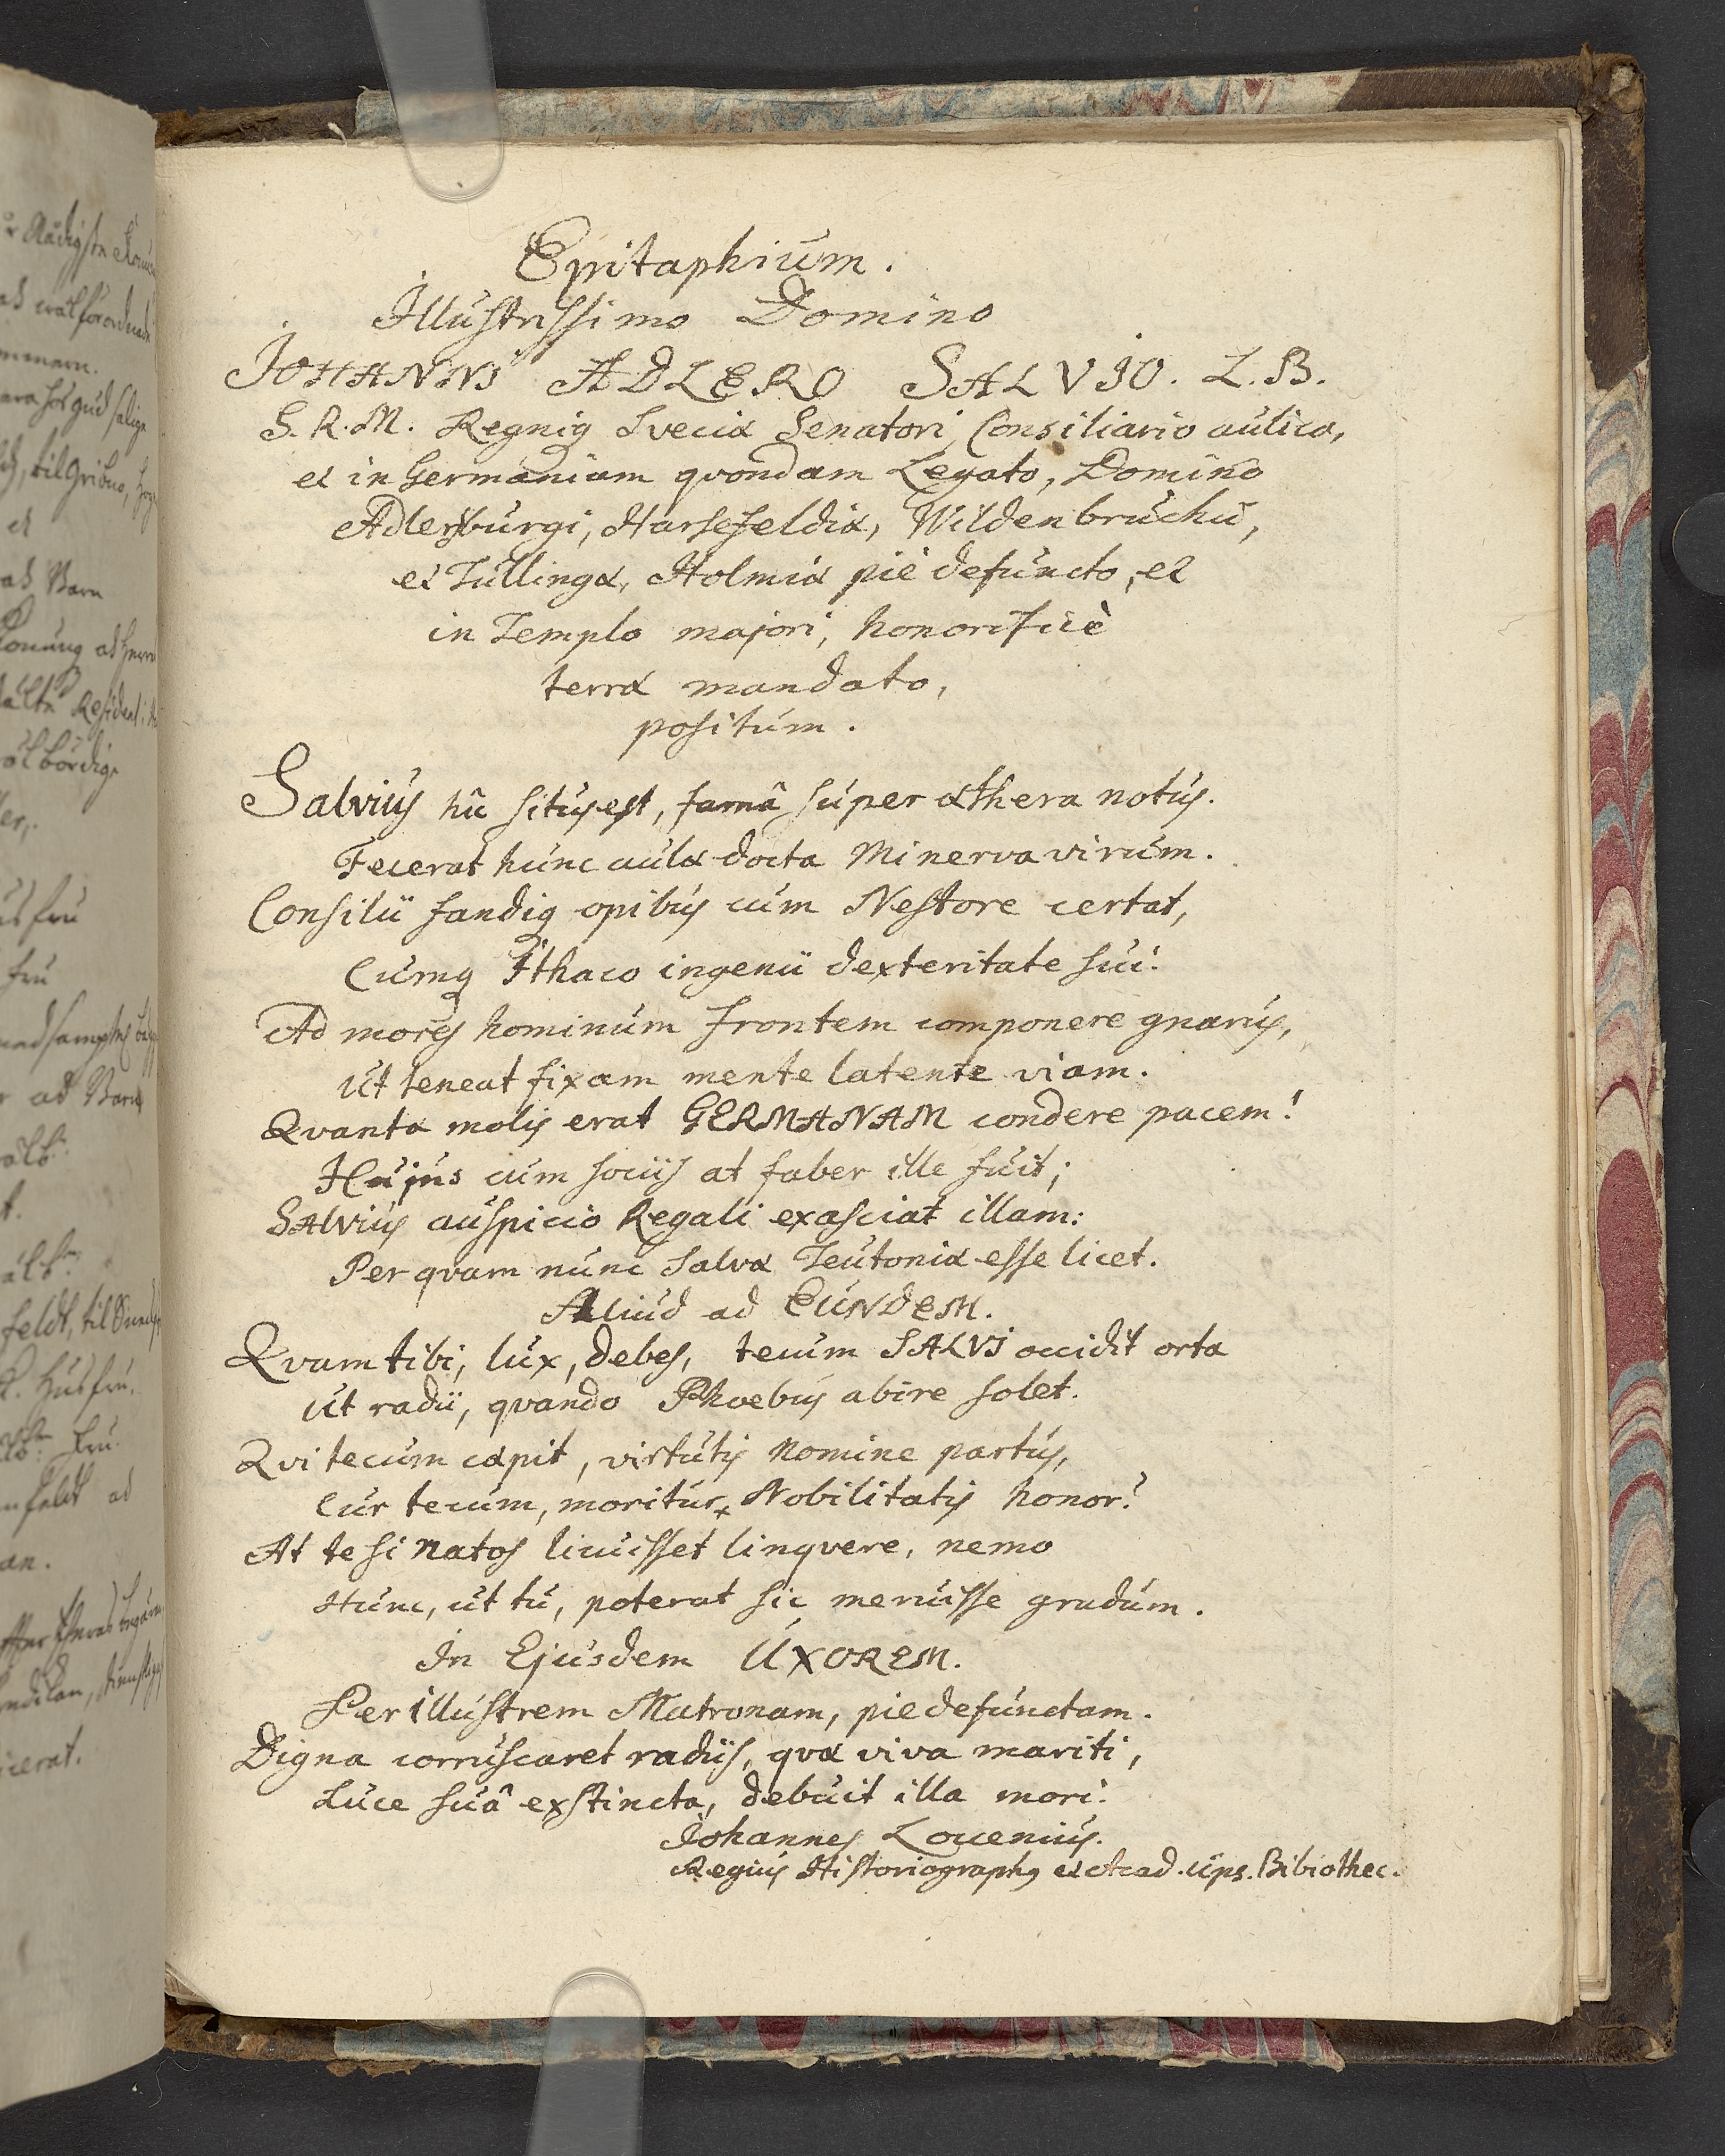 Epitaphium.
Illustrissimo Domino
JOHANNI ADLERO SALVIO. L.B.
S.R.M. Regniq Sveciæ Senatori, Consiliario aulico,
et in Germaniam qvondam Legato, Domino
Adlersburgi, Harsefeldiæ, Wildenbruchii,
et Tullingæ, Holmiæ piè defuncto, et
in Templo majori, honorificè
terræ mandato,
positum.
Salvius hîc situs est, famâ super æthera notus.
Fecerat hunc aulæ docta Minerva virum.
Consilii fandiq opibus cum Nestore certat,
Cumq Ithaco ingenii dexteritate sui.
Ad mores hominum frontem componere gnarus,
ut teneat fixam mente latente viam.
Qvantæ molis erat GERMANAM condere pacem!
Hujus cum sociis at faber ille fuit;
SAlvius auspicio Regali exasciat illam:
Per qvam nunc salvæ Teutoniæ esse licet.
Aliud ad EUNDEM.
Qvam tibi, lux, debes, tecum SALVI occidit orta
ut radii, qvando Phoebus abire solet.
Qvi tecum cæpit, virtutis nomine partus,
Cur tecum, moritur, Nobilitatis honor?
At te si natos licuisset linqvere, nemo
Hunc, ut tu, poterat sic meruisse gradum.
In Ejusdem UXOREM.
Perillustrem Matronam, pie defunctam.
Digna corruscaret radiis, qvæ viva mariti,
Luce suâ exstincta, debuit illa mori.
Johannes Loccenius.
Regius Historiographq et Acad. Ups. Bibiothec.